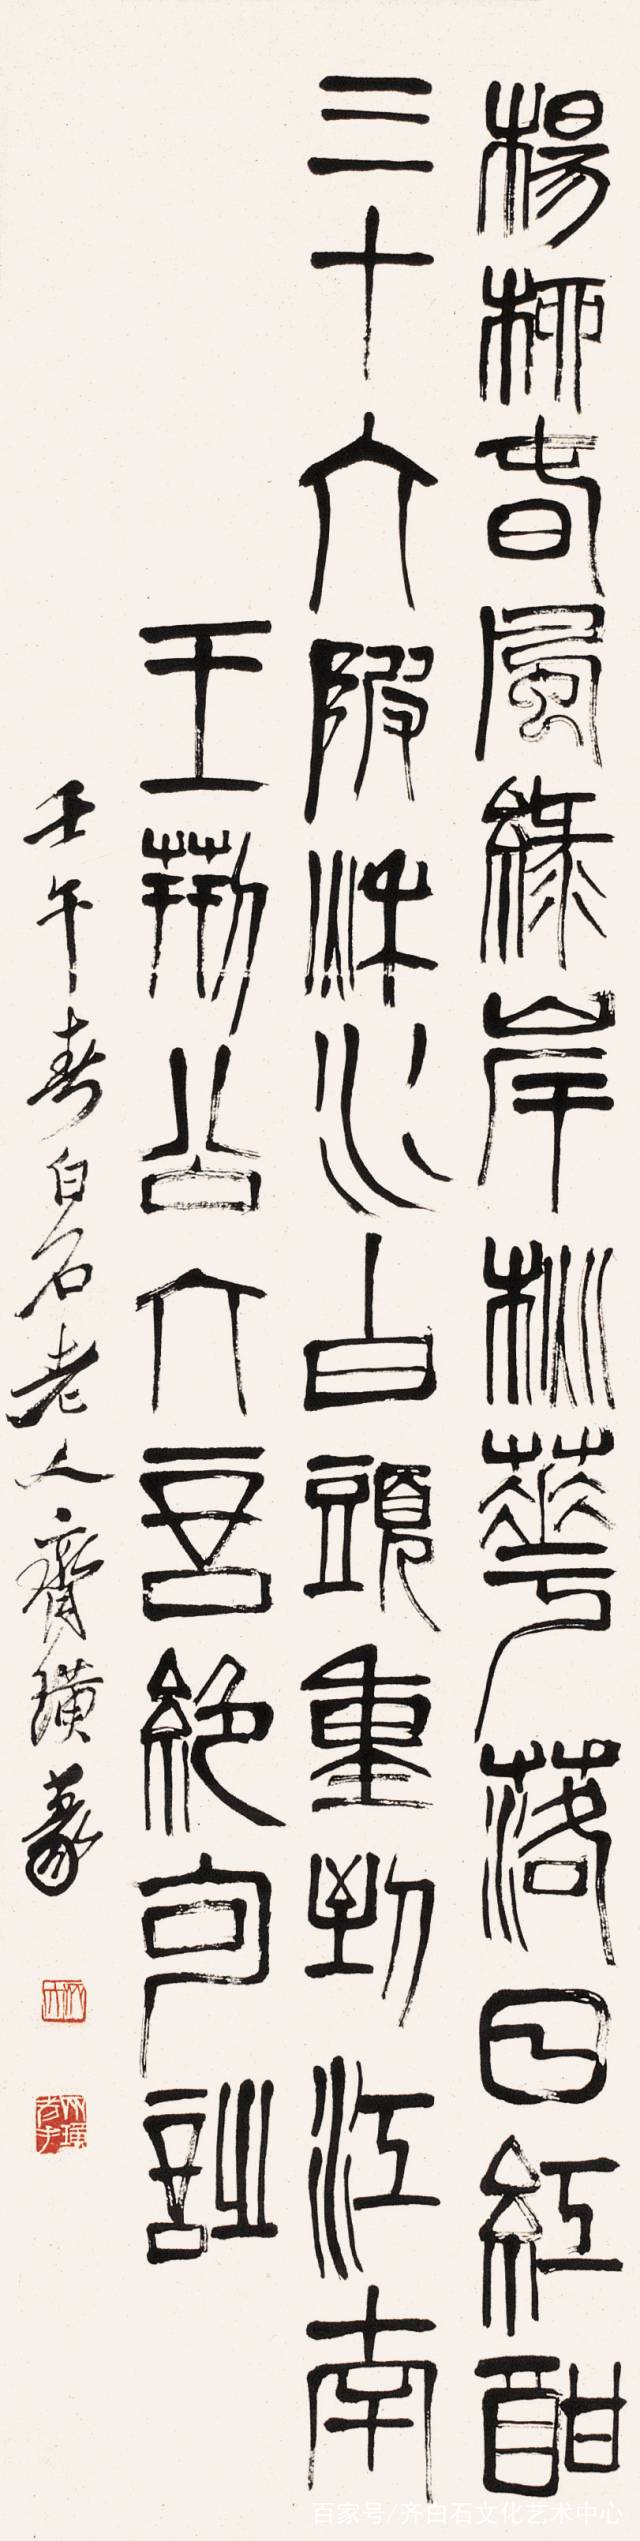 楊柳春風綠岸桃華落日紅酣
三十六陂流水白頭重到江南
王荊公六言絕句詩
壬午春白石老人齊璜篆
百家号/齐白石文化艺术中心